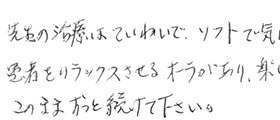 先生の治療はていねいで、ソフトで気
患者をリラックスさせるオーラがあり、楽
このままずっと続けて下さい。